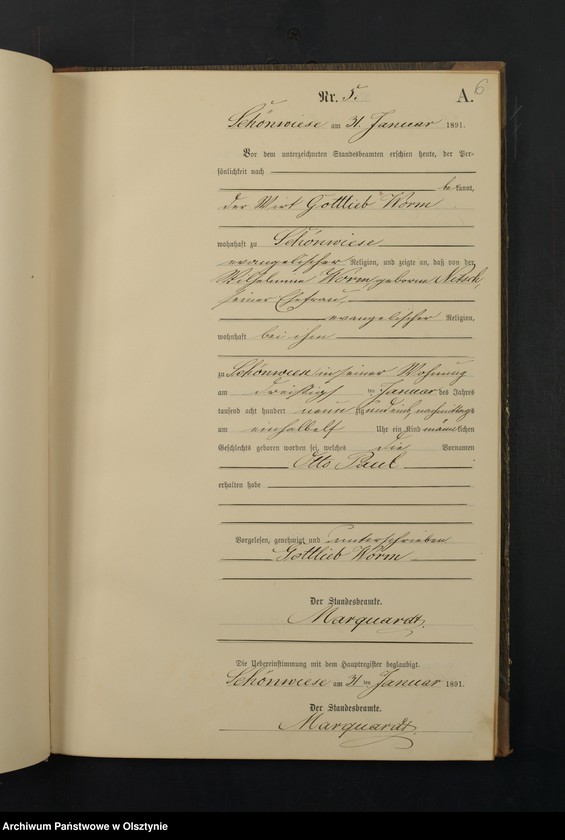 6
Nr. 5. A.
Schönwiese am 31. Januar 1891.
Vor dem unterzeichneten Standesbeamten erschien heute, der Per-
sönlichkeit nach
be kannt,
der Wirt Gottlieb Worm
wohnhaft zu Schönwiese
evangelischer Religion, und zeigte an, daß von der
Wilhelmine Worm, geborene Nitsch,
seiner Ehefrau,
evangelischer Religion,
wohnhaft bei ihm
zu Schönwiese in seiner Wohnung
am dreißigsten Januar des Jahres
tausend acht hundert neunzig und eins, nachmittags
um einhalbelf Uhr ein Kind männlichen
Geschlechts geboren worden sei, welches die Vornamen
Otto Paul
erhalten habe
Vorgelesen, genehmigt und unterschrieben
Gottlieb Worm
Der Standesbeamte.
Marquardt.
Die Uebereinstimmung mit dem Hauptregister beglaubigt.
Schönwiese am 31 ten Januar 1891.
Der Standesbeamte.
Marquardt.
Archiwum Państwowe w Olsztynie